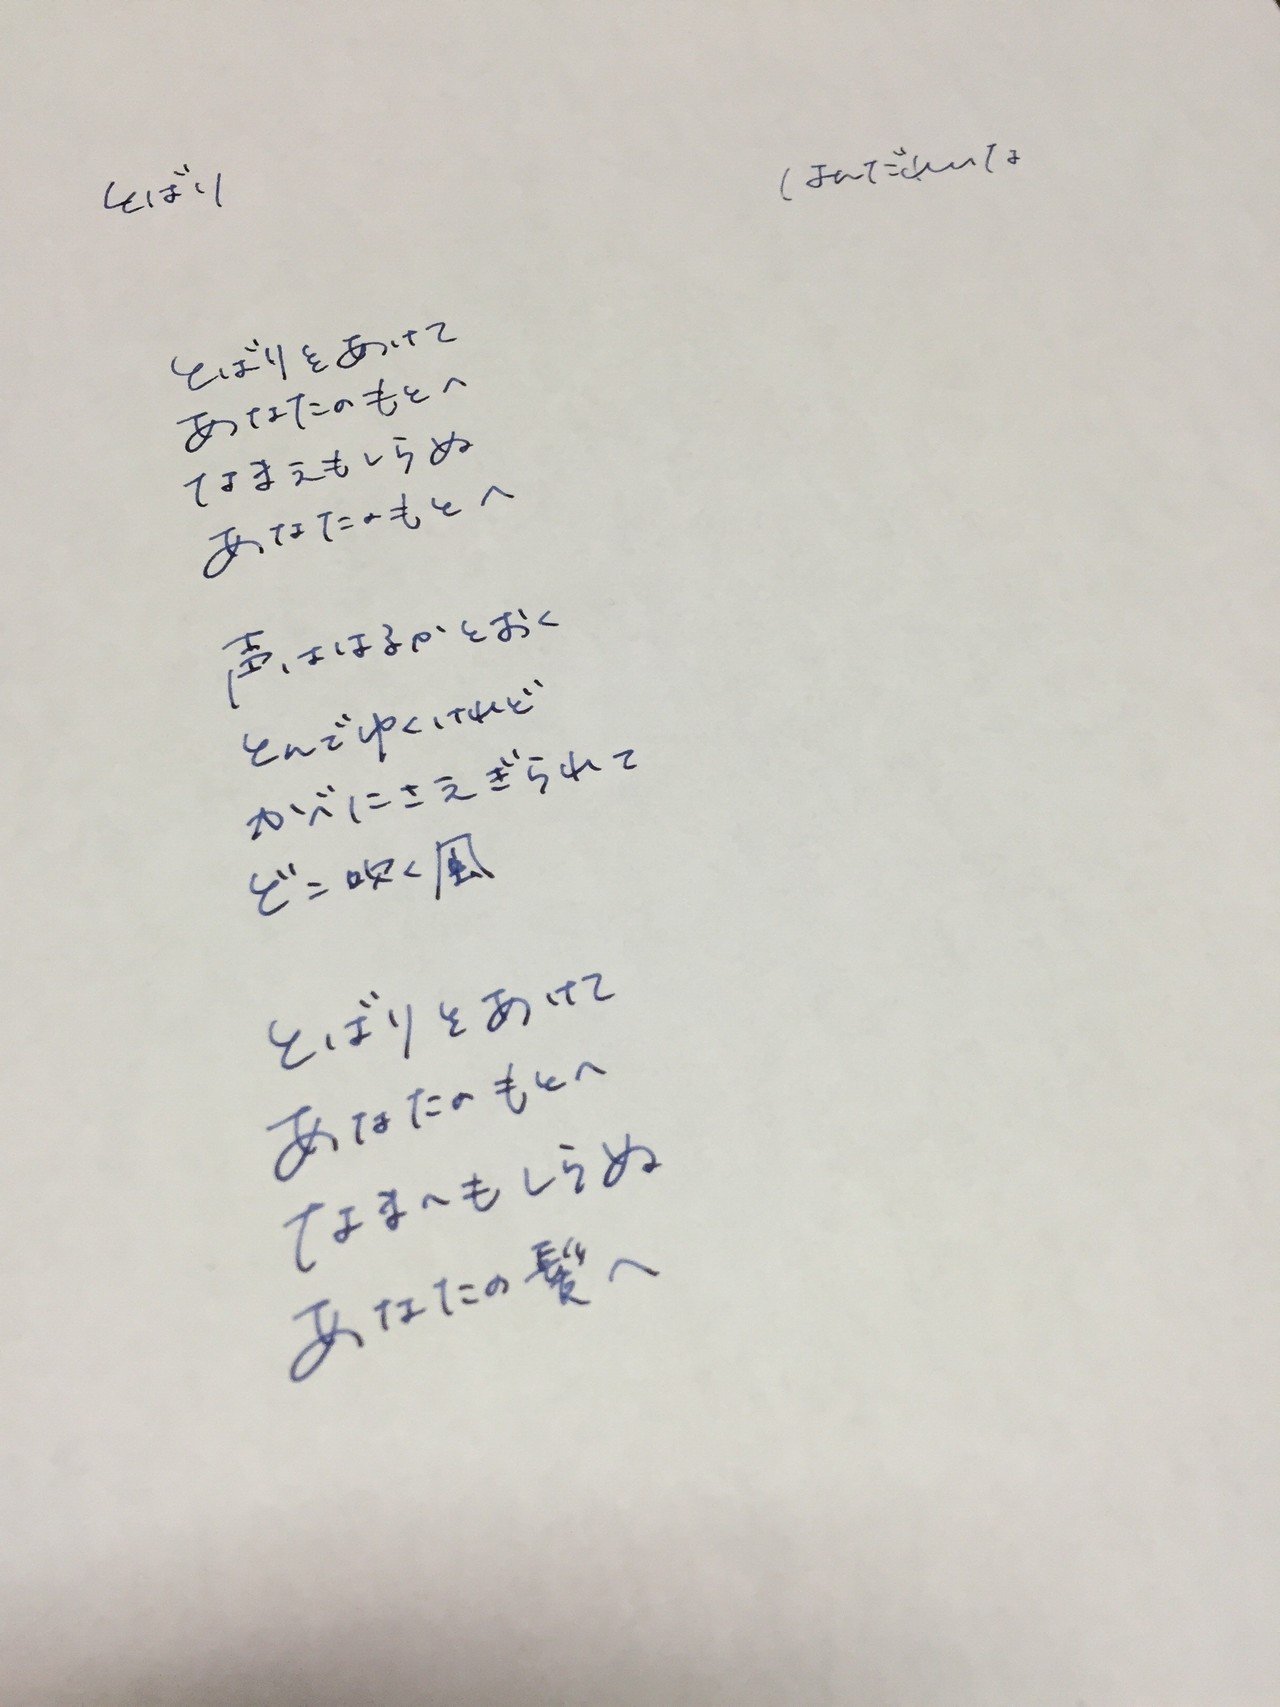 とばり
とばりをあけて
あなたのもとへ
なまえもしらぬ
あなたのもとへ
声ははるかとおく
とんでゆくけれど
かべにさえぎられて
どこ吹く風
とばりをあけて
あなたのもとへ
なまへもしらぬ
あなたの髪へ